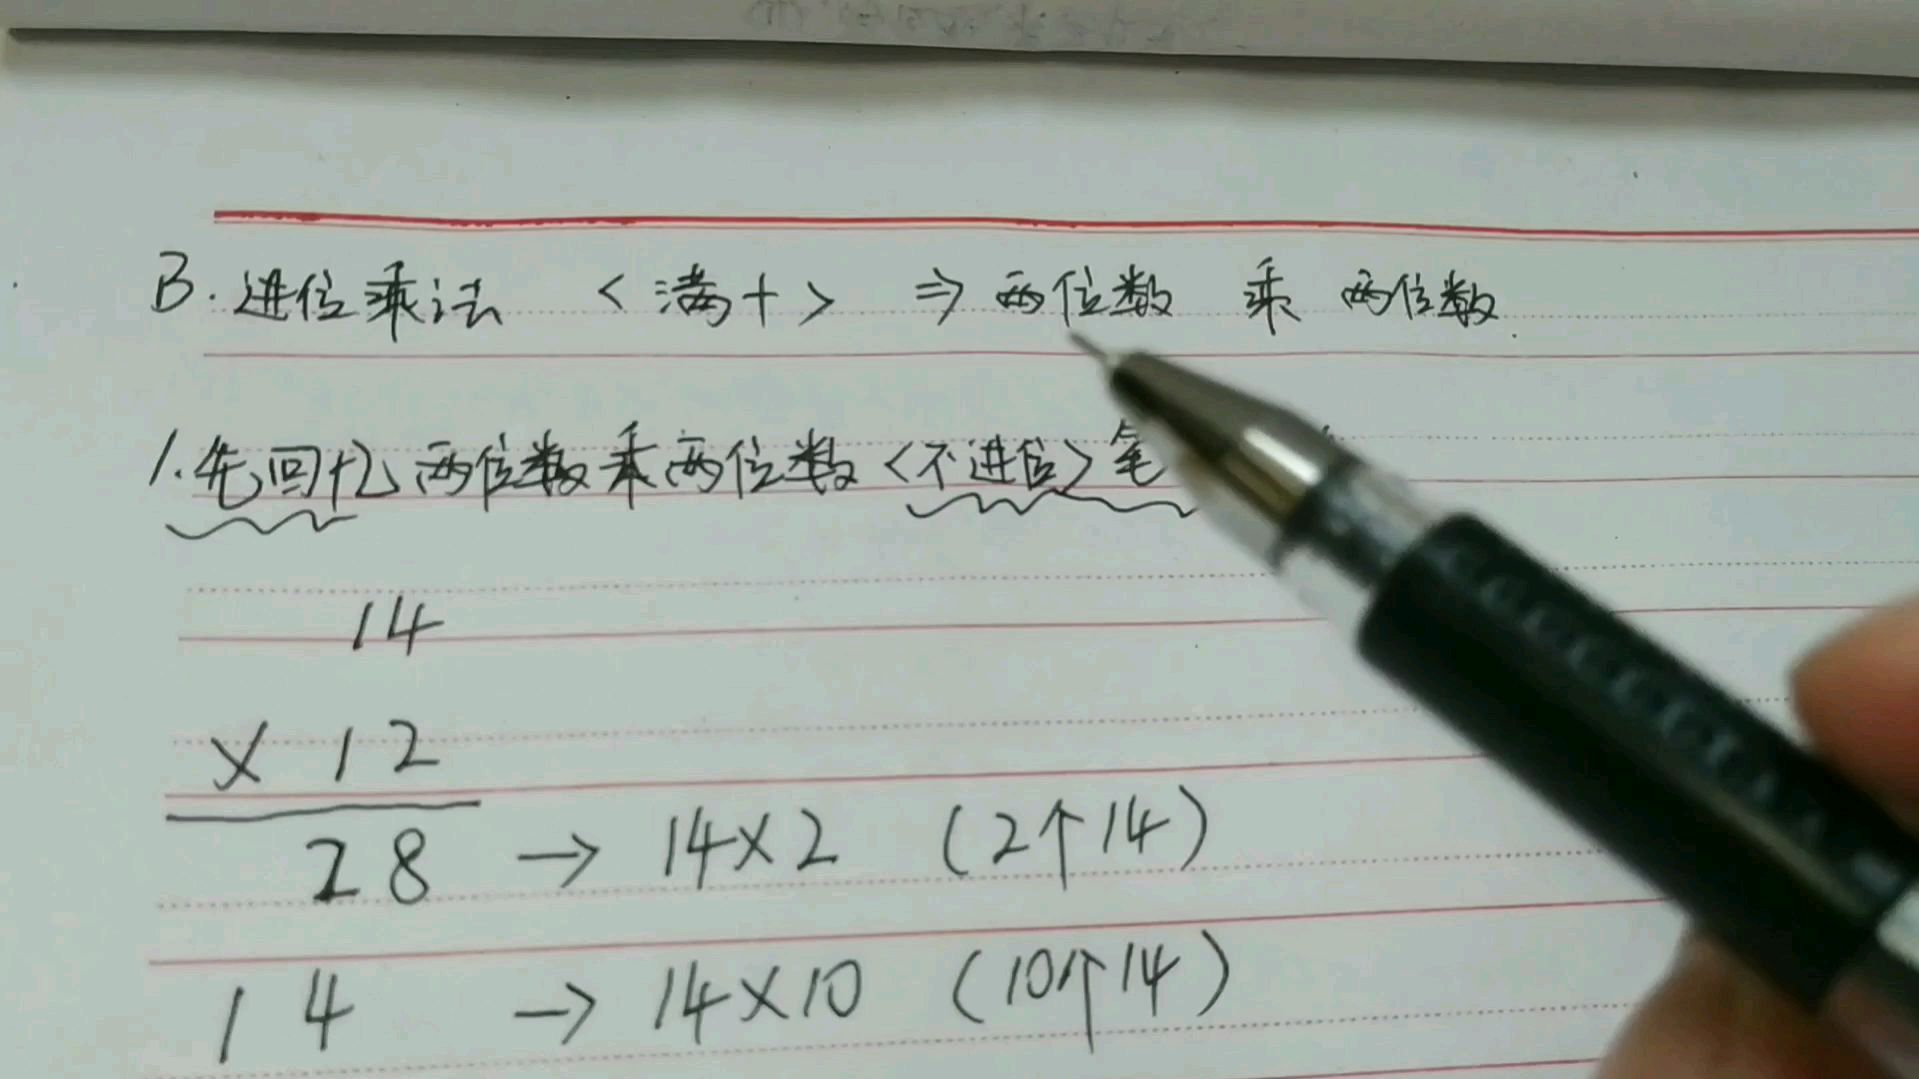 B. 进位乘法 <满十> ⇒ 两位数 乘 两位数.
1. 先回忆两位数乘两位数<不进位>笔
14
× 12
28 → 14×2 (2个14)
14 → 14×10 (10个14)